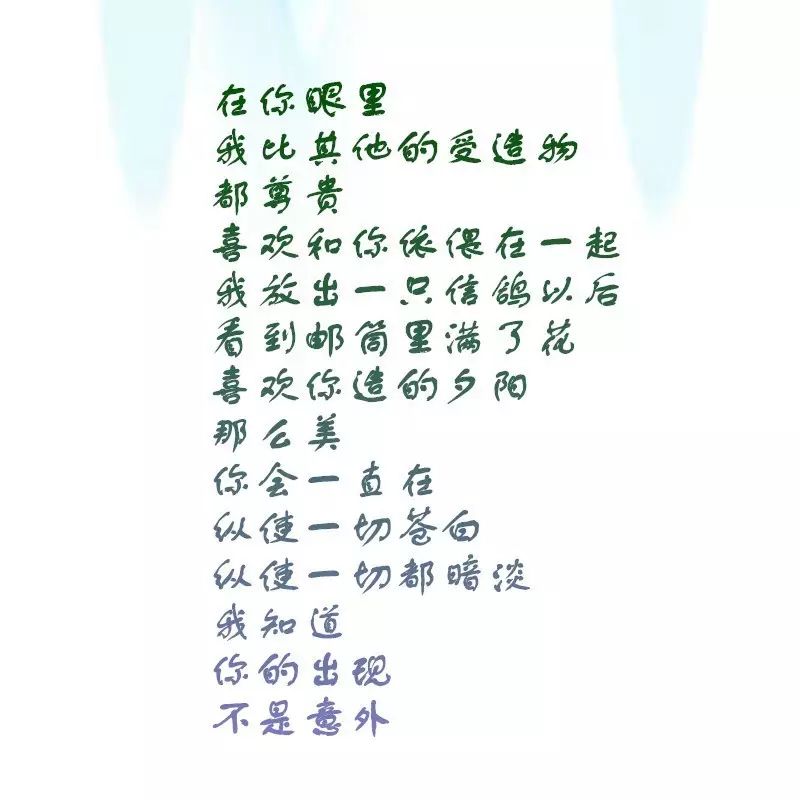 在你眼里
我比其他的受造物
都尊贵
喜欢和你依偎在一起
我放出一只信鸽以后
看到邮筒里满了花
喜欢你造的夕阳
那么美
你会一直在
纵使一切苍白
纵使一切都暗淡
我知道
你的出现
不是意外